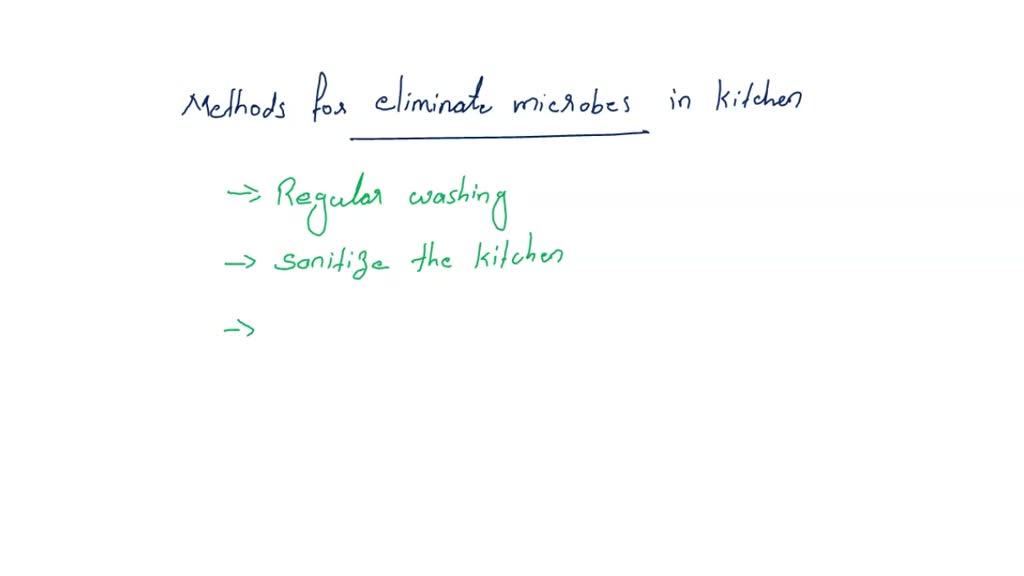 Methods for eliminate microbes in kitchen
→ Regular washing
→ sanitize the kitchen
→